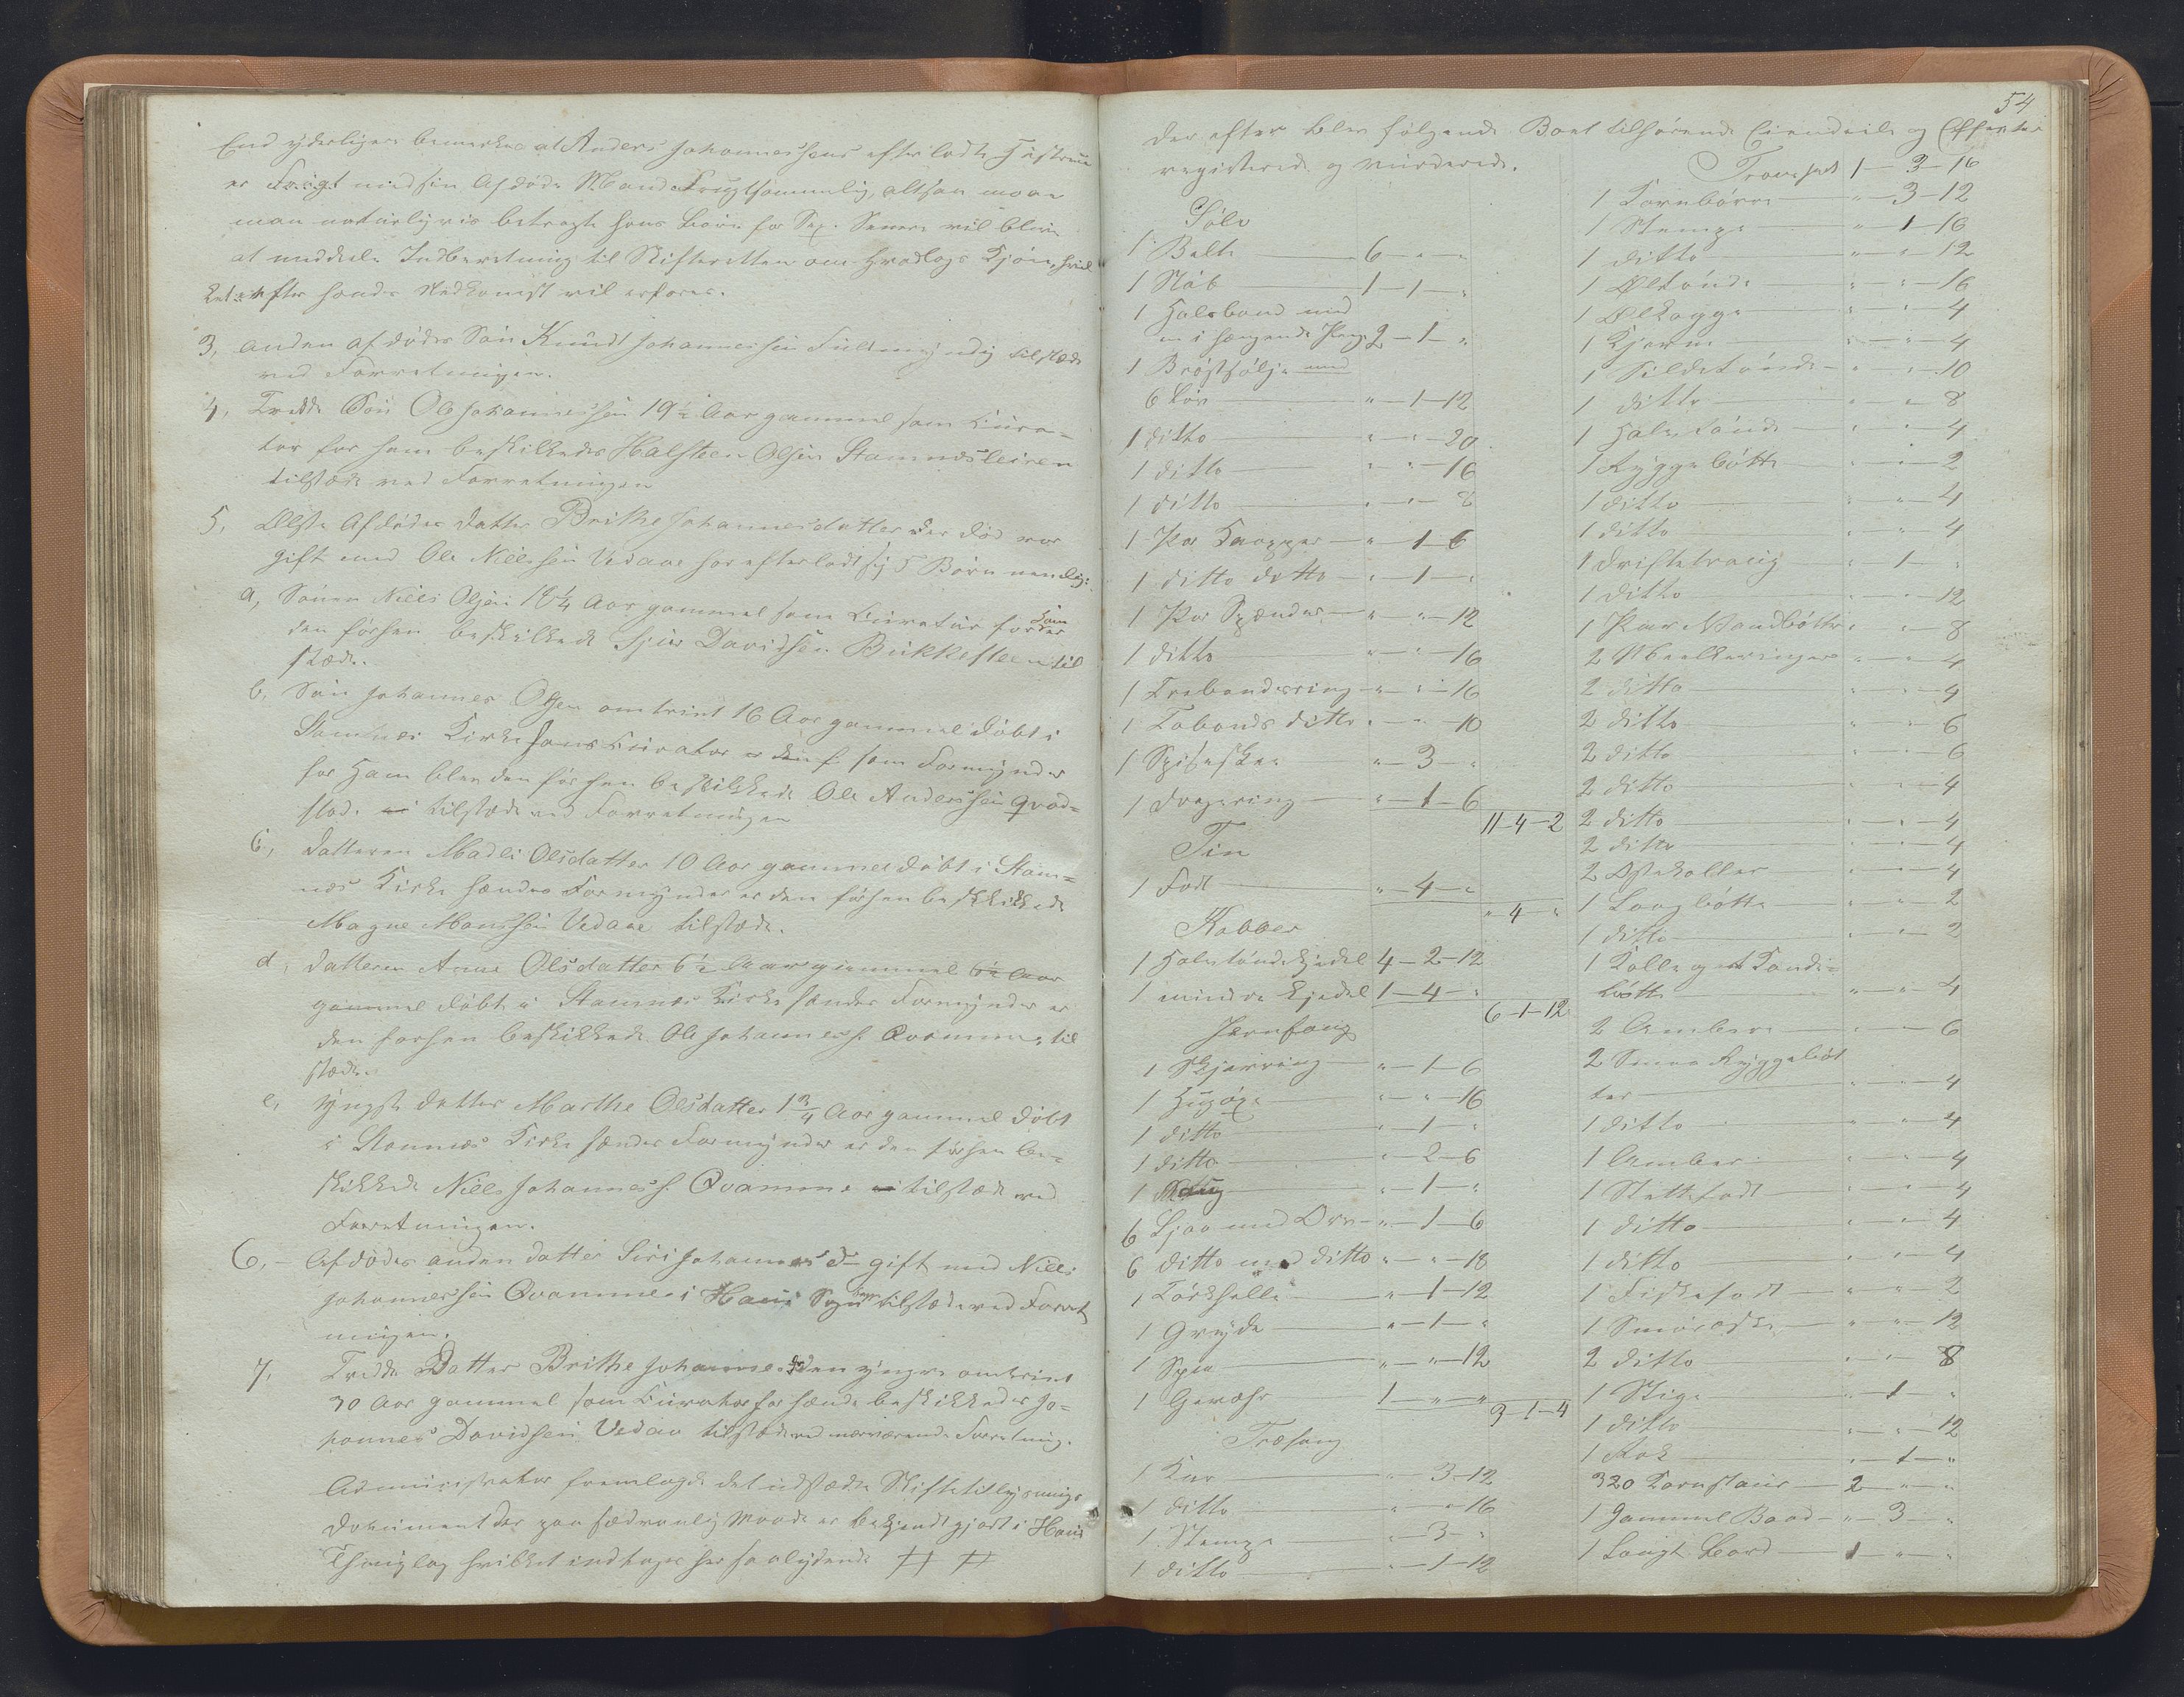 End yderligere bemærkes at Anders Johannessens efterladte Hustrue
er Frugt med sin Afdøde Mand Frugtsommelig, altsaa maae
man naturligvis betragte hans Børn for Sex. Senere vil blive
at meddele Indberetning til Skifteretten om hvadlags Kjøn, hvil
ket efter hends Nedkomst vil erfares.
3, anden afdødes Søn Knudt Johannessen Fuldmyndig tilstæde
ved Forretningen.
4, Tredde Søn Ole Johannessen 19½ Aar gammel som Cura-
tor for ham beskikkedes Halsteen Olsen Stamnesleiren
tilstæde ved Forretningen
5, Ælste Afdødes Datter Brithe Johannesdatter der død var
gift med Ole Nielssen Vedaae har efterladt sig 5 Børn nemlig:
a, Sønen Niels Olsen 18¼ Aar gammel som Curatur for ham
den forhen beskikkede Sjur Davidsen Bukkesteen til
stæde.
b, Søn Johannes Olsen omtrint 16 Aar gammel døbt i
Stamnes Kirke hans Curator er den f. som Formynder
for Ham blev den forhen beskikkede Ole Anderssen Qvad-
stad. tilstæde ved Forretningen
C, Datteren Madli Olsdatter 10 Aar gammel døbt i Stam-
næs Kirke hændes Formynder er den forhen beskikkede
Magne Monssen Vedaae tilstæde.
d, Datteren Anna Olsdatter 6½ Aar gammel 6½ Aar
gammel døbt i Stamnes Kirke hændes Formynder er
den forhen beskikkede Ole Johanness. Qvamme, til
stæde.
e, Yngste Datter Marthe Olsdatter 1¾ Aar gammel døbt
i Stamnes Kirke hændes Formynder er den forhen be-
skikkede Niels Johanness. Qvamme tilstæde ved
Forretningen.
6, - Afdødes anden Datter Siri Johannesd- gift med Niels
Johannessen Qvamme i Hauss Sogn tilstæde ved Forret
ningen.
7, Tredde Datter Brithe Johannesd. den yngre omtrint
30 Aar gammel som Curator for hænde beskikkedes Jo-
hannes Davidsen Vedaa tilstæde ved nærværende Forretning.
Administrator fremlagde det udstædte Skiftetillysnings
Document der paa sædvanlig Maade er bekjendtgjort i Hauss
Thinglag hvilket indtages her saalydende ## ##
54
Der efter blev følgende Boet tilhørende Eiendeile og Effecter
registerede og vurderede.
Sølv
1 Belte 6 - " - "
1 Stab 1 - 1 - "
1 Halsbaand med
en i hængende Peng 2 - 1 - "
1 Brøstsølje med
6 Løv " - 1 - 12
1 ditto " - " - 20
1 ditto " - " - 16
1 ditto " - " - 8
1 Par Knapper " - 1 - 6
1 ditto ditto " - 1 - "
1 Par Spænder " - " - 12
1 ditto " - " - 16
1 Trebandsring " - " - 16
1 Tobands ditto " - " - 10
1 Spiseskee " - 3 - "
1 Dragering " - 1 - 6
11 - 4 - 2
Tin
1 Fad " - 4 - "
" - 4 - "
Kobber
1 Halvtøndekjedel 4 - 2 - 12
1 mindre kjedel 1 - 4 - "
6 - 1 - 12
Jernfang
1 Skjæring " - 1 - 6
1 Hugøxe " - " - 16
1 ditto " - 1 - "
1 ditto " - 2 - 6
1 " - 1 - "
6 Ljaa med Orv " - 1 - 6
6 ditto med ditto " - " - 18
1 Tørkhelle " - 1 - 12
1 Gryde " - 1 - "
1 Spea " - " - 12
1 Gevæhr 1 - " - "
3 - 1 - 4
Træfang
1 Kar " - 3 - 12
1 ditto " - " - 16
1 Stampe " - 3 - "
1 ditto " - 1 - 12
Transport 1 - 3 - 16
1 Kornbøre " - 3 - 12
1 Stampe " - 1 - 16
1 ditto " - " - 12
1 Øltønde " - " - 16
1 Ølkagge " - " - 4
1 Kjærne " - " - 4
1 Sildetønde " - " - 10
1 ditto " - " - 8
1 Halv Tønde " - " - 4
1 Ryggebøtte " - " - 2
1 ditto " - " - 4
1 ditto " - " - 4
1 Driftetraug " - 1 - "
1 ditto " - " - 12
1 Par Vandbøtter " - " - 8
2 Meelkeringer " - " - 4
2 ditto " - " - 4
2 ditto " - " - 6
2 ditto " - " - 6
2 ditto " - " - 4
2 ditto " - " - 4
2 ditto " - " - 4
2 Ostekoller " - " - 4
1 Laagbøtte " - " - 2
1 ditto " - " - 2
1 Kolle og et Kande-
bøtte " - " - 4
2 Ambere " - " - 6
2 Smaa Ryggebøt
ter " - " - 4
1 ditto " - " - 4
1 Amber " - " - 4
1 Stettefadt " - " - 4
1 ditto " - " - 4
1 ditto " - " - 4
1 Fiskefadt " - " - 2
1 Smøraske " - " - 12
2 ditto " - " - 8
1 Stige " - 1 - "
1 ditto " - " - 12
1 Rok " - 1 - "
320 Kornstaur 2 - " - "
1 Gammel Baad " - 3 - "
1 Langt Bord 1 - " - "